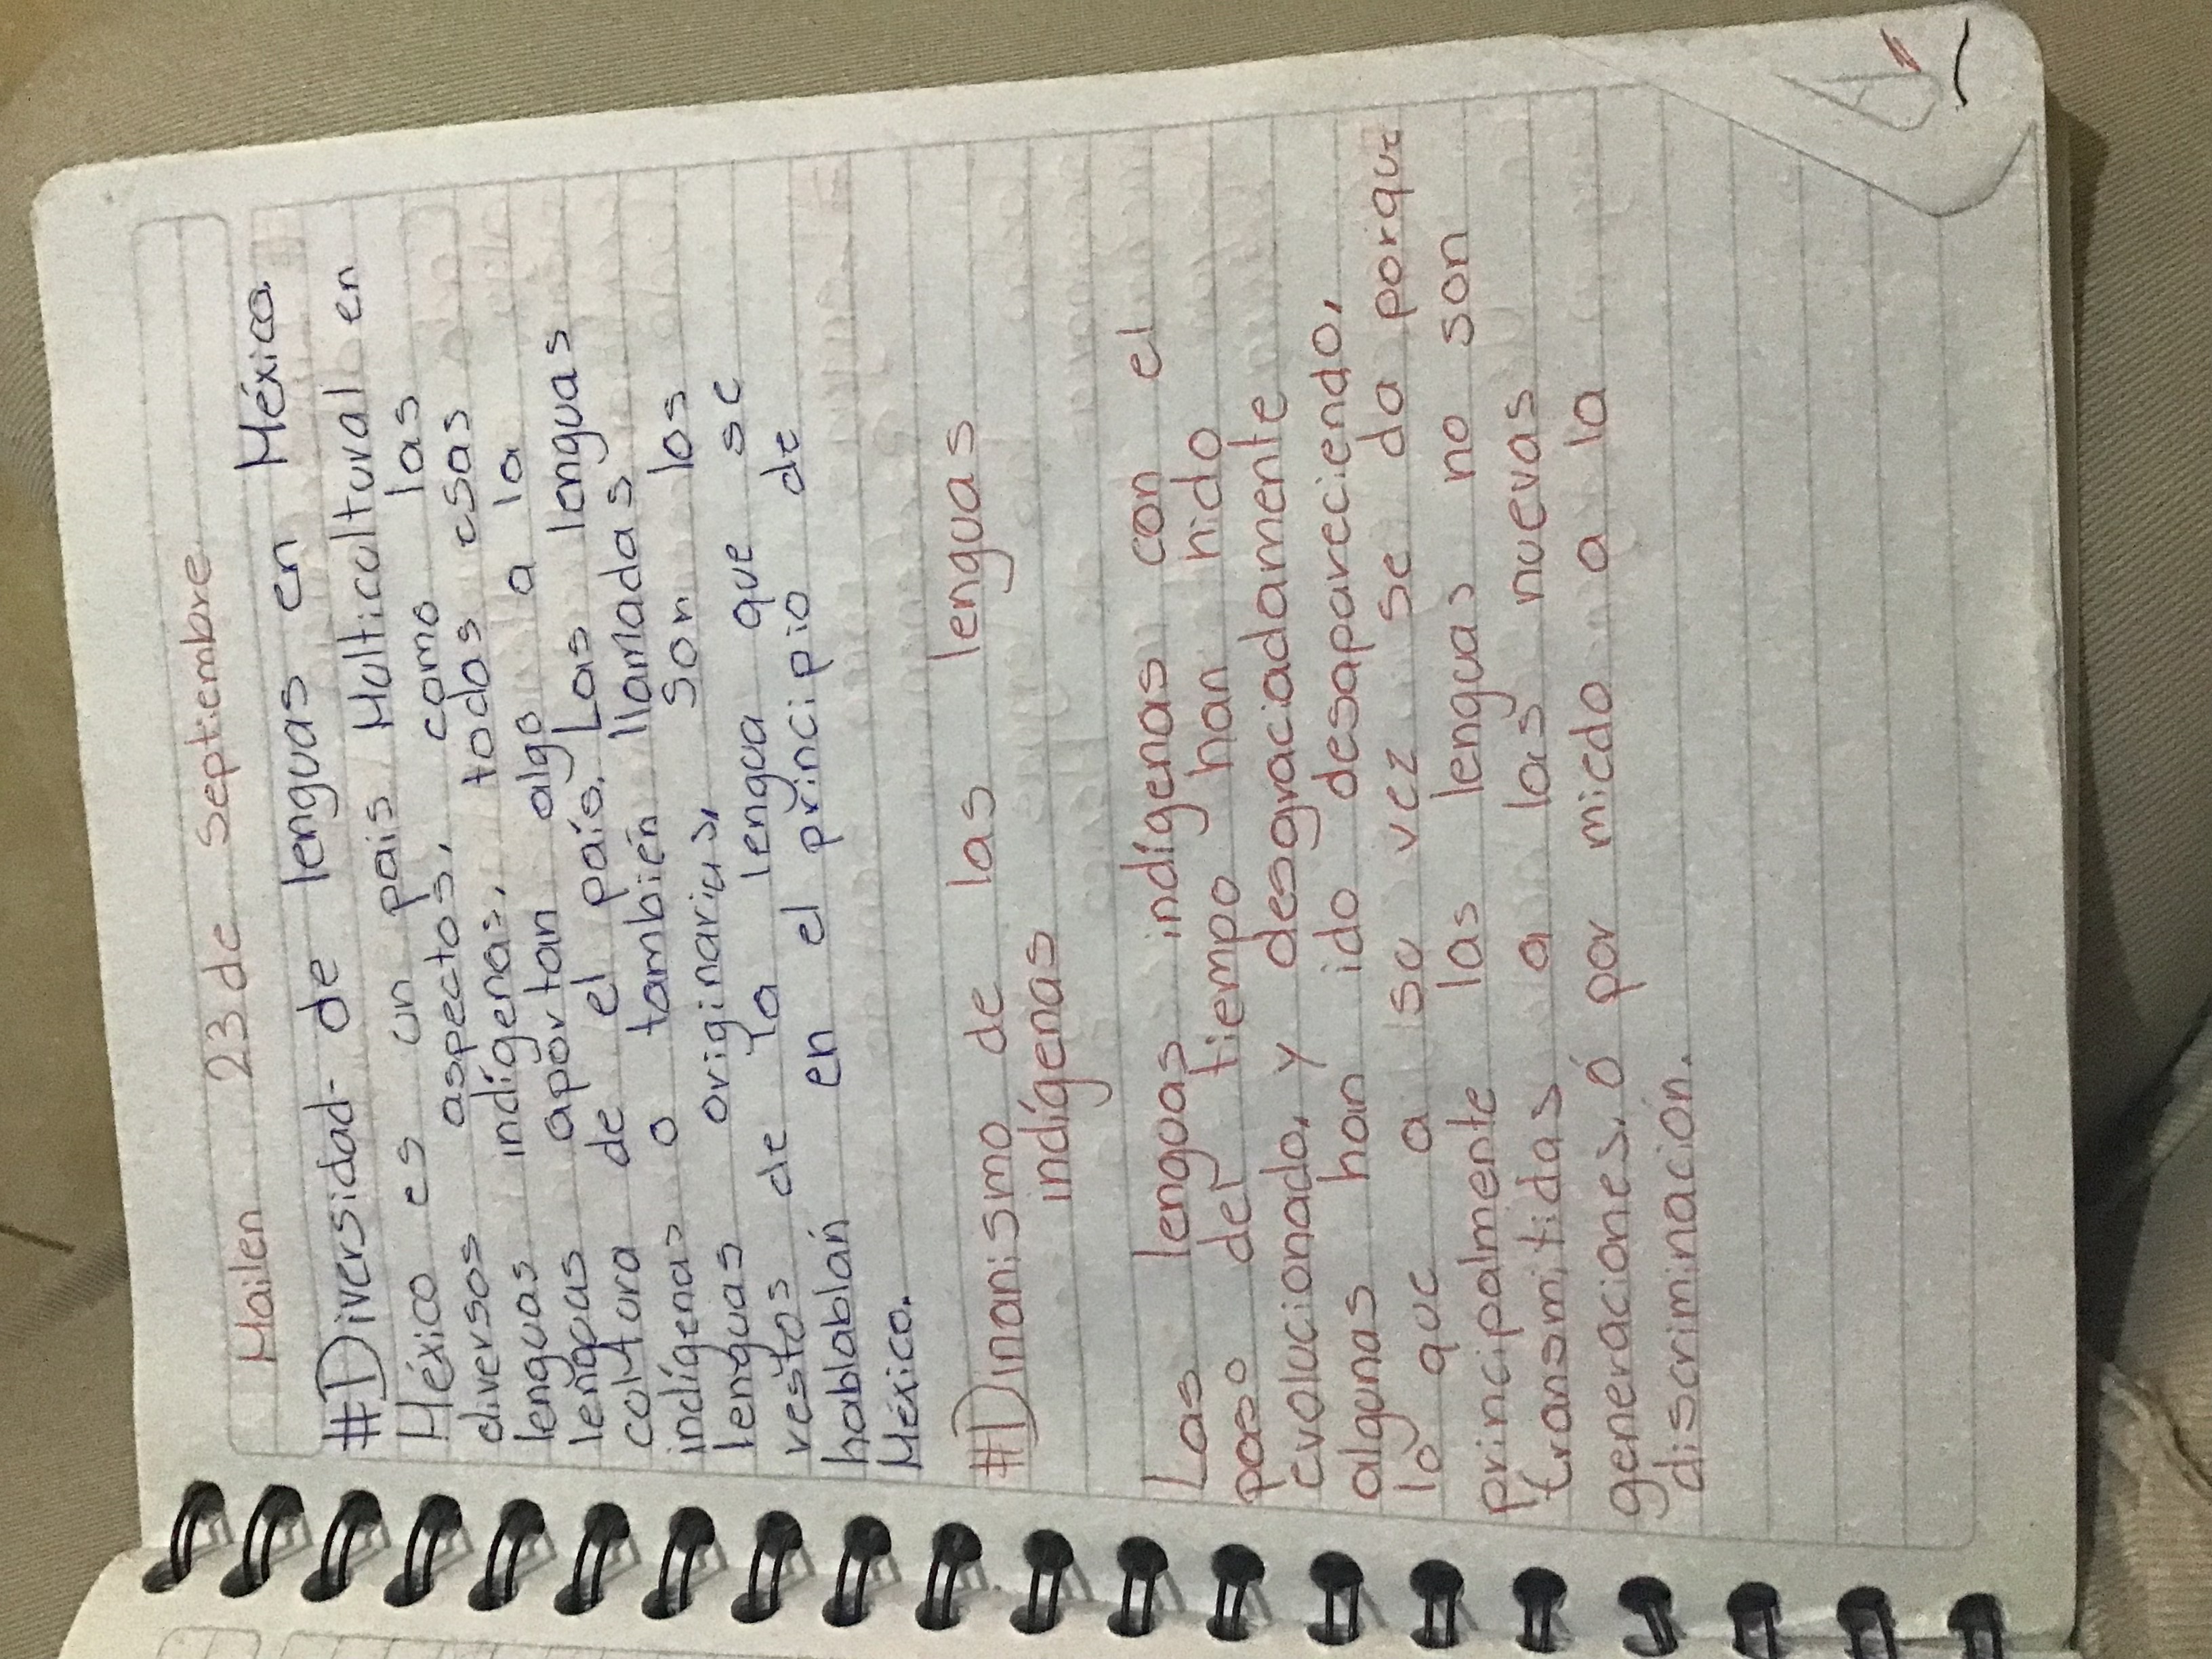 Mailen 23 de Septiembre
#Diversidad de lenguas en México
México es un país Multicultural en
diversos aspectos, como las
lenguas indígenas, todas esas
lenguas aportan algo a la
cultura de el país. Las lenguas
indígenas o también llamadas
lenguas originarias, son los
restos de la lengua que se
hablablán en el principio de
México.
#Dinanismo de las lenguas
indígenas
Las lenguas indígenas con el
paso del tiempo han hido
evolucionado, y desgraciadamente
algunas han ido desapareciendo,
lo que a su vez se da porque
principalmente las lenguas no son
transmitidas a las nuevas
generaciones, ó por miedo a la
discriminación.